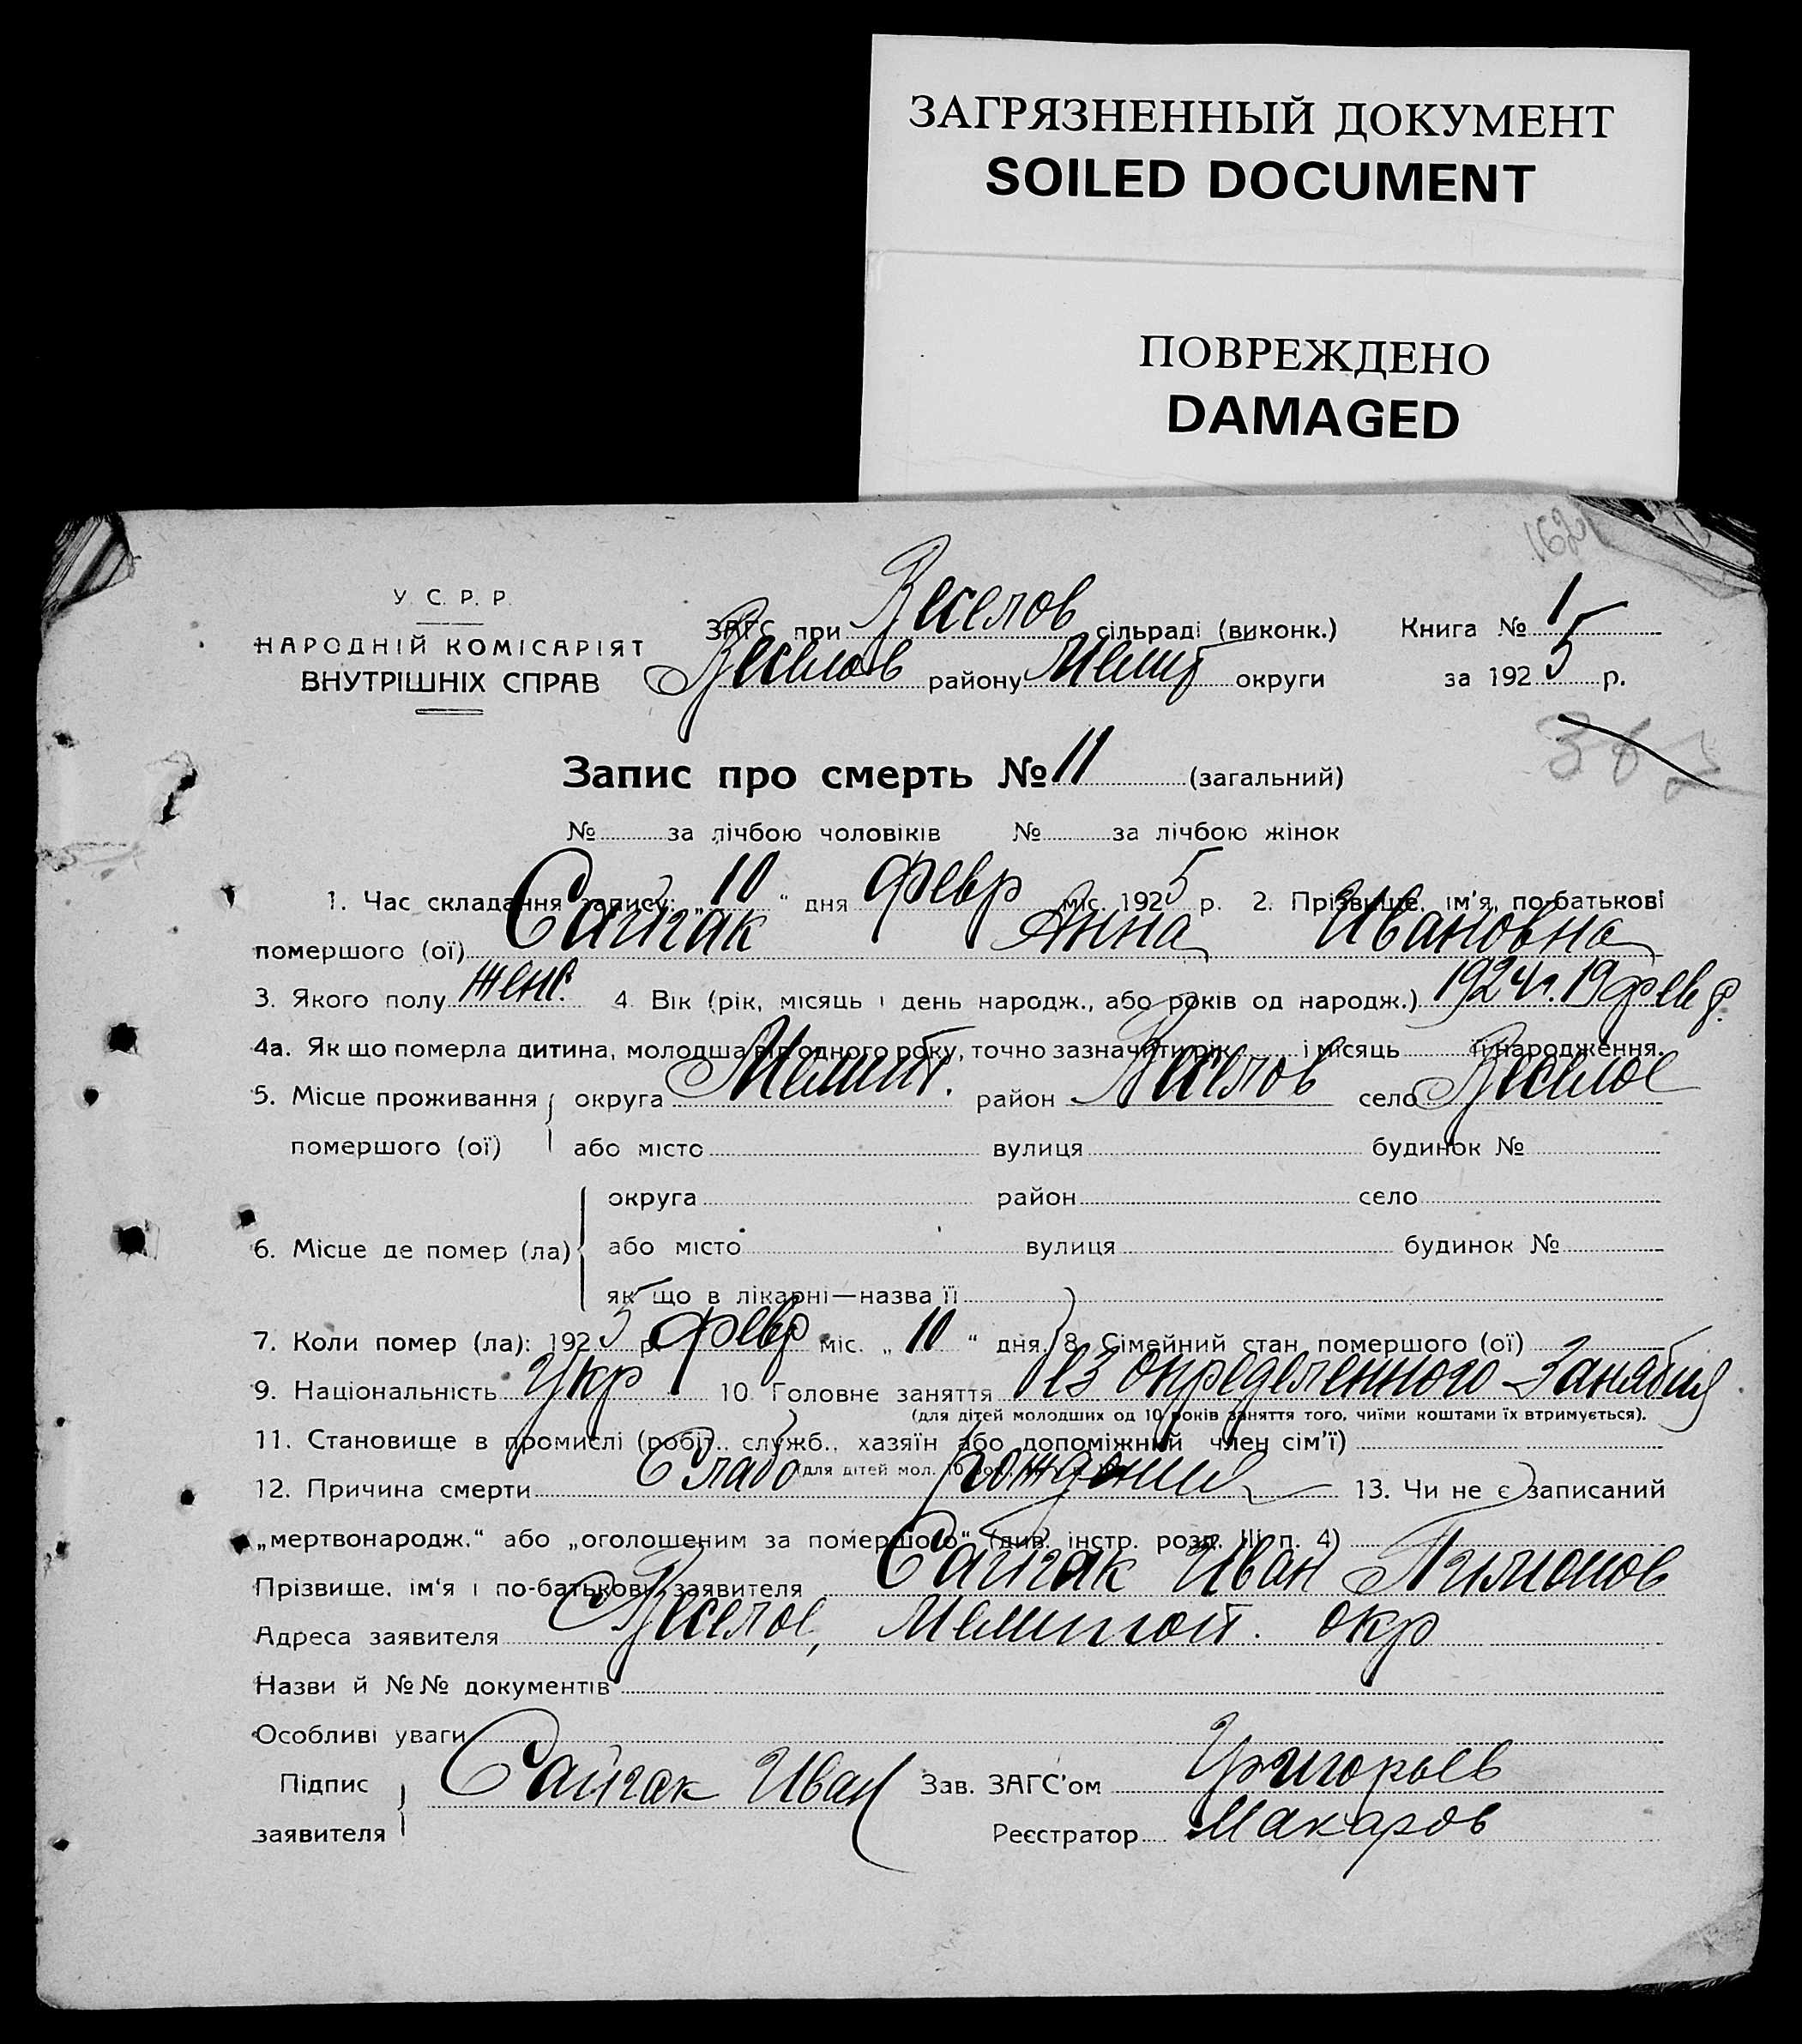 ЗАГРЯЗНЕННЫЙ ДОКУМЕНТ
SOILED DOCUMENT
ПОВРЕЖДЕНО
DAMAGED
162
У. С. Р. Р.
НАРОДНІЙ КОМІСАРІЯТ
ВНУТРІШНІХ СПРАВ
ЗАГС при Веселов сільраді (виконк.) Книга № 1
Веселов району Мелит округи за 1925 р.
Запис про смерть № 11 (загальний)
№ за лічбою чоловіків № за лічбою жінок
1. Час складання запису: „10“ дня февр міс. 1925 р. 2. Прізвище, ім'я, по-батькові
помершого (ої) Сайгак Анна Ивановна
3. Якого полу женс. 4. Вік (рік, місяць і день народж., або років од народж.) 1924 г. 19 февр.
4а. Як що померла дитина, молодша від одного року, точно зазначити рік і місяць її народження.
5. Місце проживання округа Мелит. район Веселов село Веселое
помершого (ої) або місто вулиця будинок №
округа район село
6. Місце де помер (ла) або місто вулиця будинок №
як що в лікарні—назва її
7. Коли помер (ла): 1925 р. февр міс. „10“ дня. 8. Сімейний стан помершого (ої)
9. Національність Укр 10. Головне заняття без определенного занятия
(для дітей молодших од 10 років заняття того, чиїми коштами їх втримується).
11. Становище в промислі (робіт., служб., хазяїн або допоміжний член сім'ї)
(для дітей мол. 10 рок.
12. Причина смерти Слабо рождение 13. Чи не є записаний
„мертвонародж.“ або „оголошеним за помершого“ (див. інстр. розд. III п. 4)
Прізвище, ім'я і по-батькові заявителя Сайгак Иван Пимонов
Адреса заявителя Веселое, Мелитоп. окр
Назви й №№ документів
Особливі уваги
Підпис Сайгак Иван Зав. ЗАГС'ом Григорьев
заявителя Реєстратор Макаров